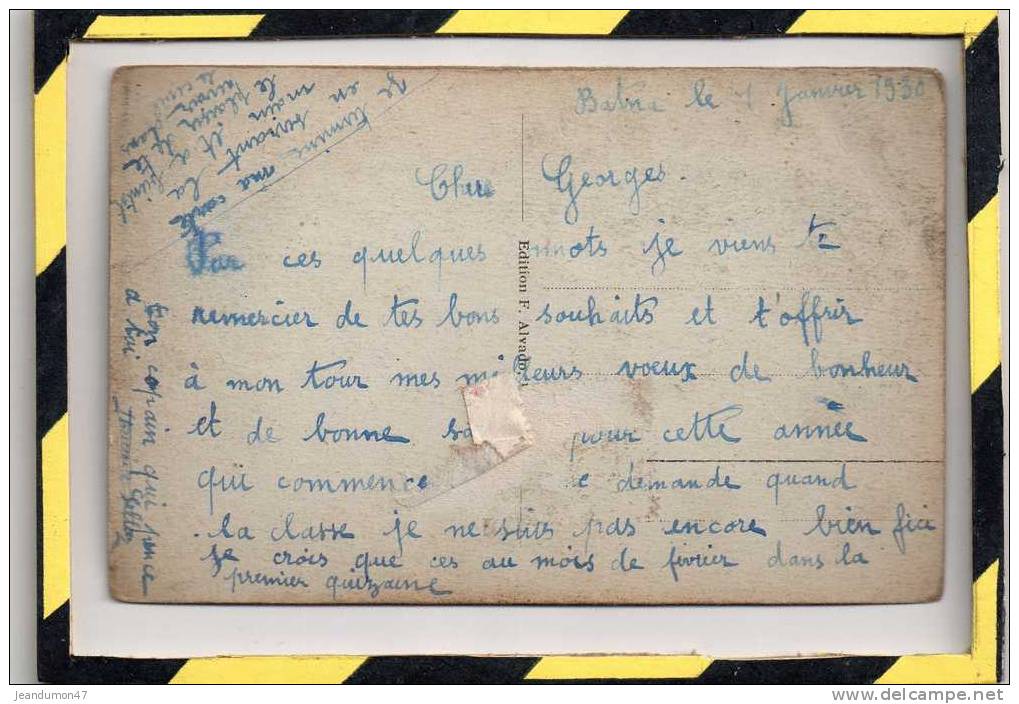 Batna le 1 Janvier 1930
Cher Georges.
Par ces quelques mots je viens te
remercier de tes bons souhaits et t'offrir
à mon tour mes meilleurs vœux de bonheur
et de bonne pour cette année
qui commence demande quand
la classe je ne suis pas encore bien fici
Je crois que ces au mois de fevrier dans la
premier quizaine
Je termine ma carte
en serrant la
main et a
le plaisir de te
Ton copain qui pence
a lui
Edition F. Alvado
jeandumon47
www.delcampe.net